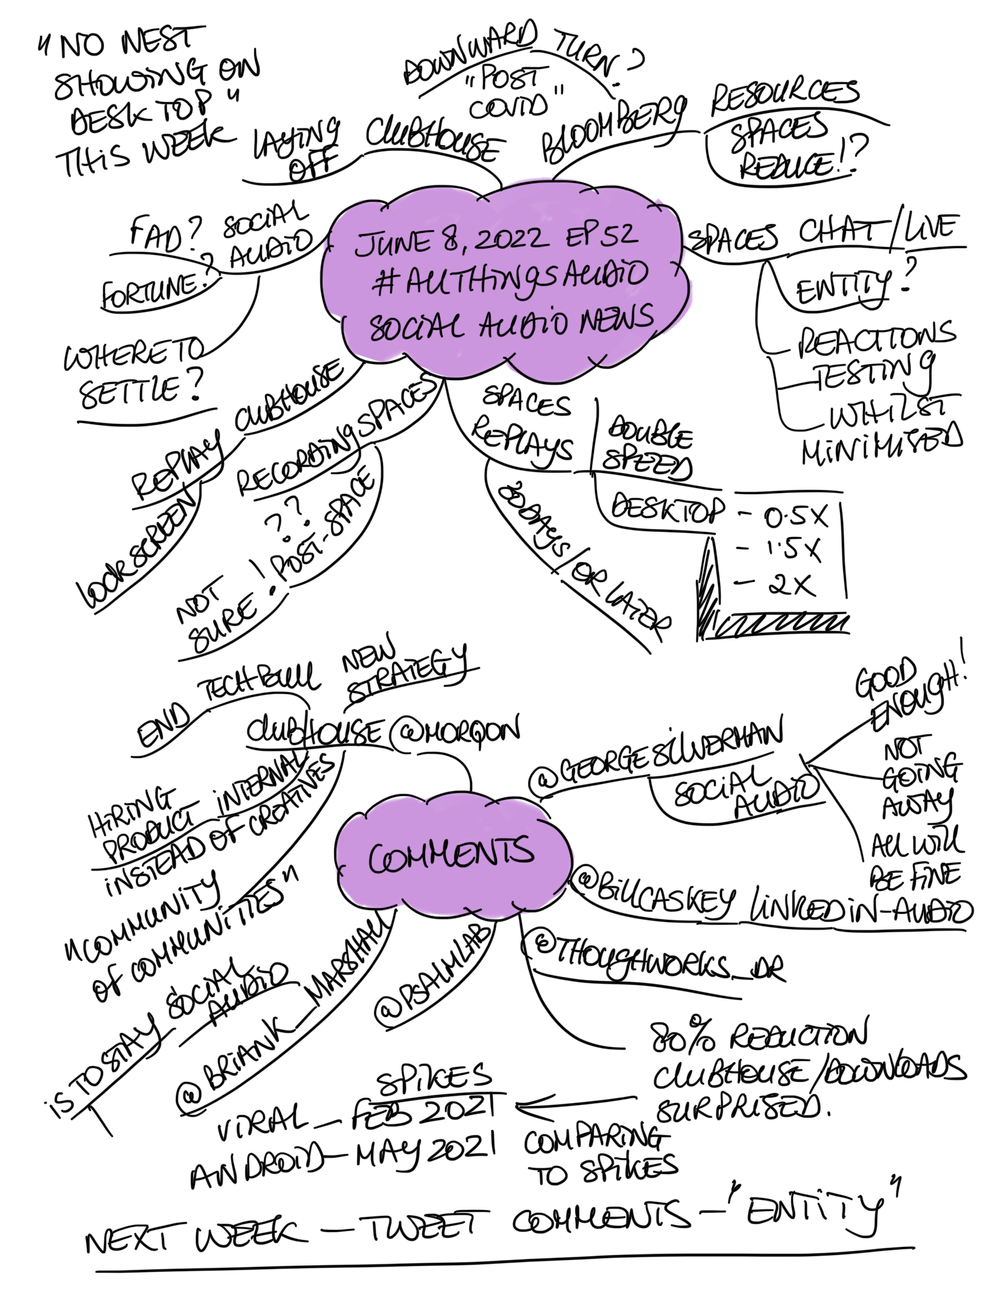 "NO NEST
SHOWING ON
DESKTOP"
THIS WEEK
DOWNWARD TURN?
"POST
COVID"
LAYING
OFF
CLUBHOUSE
BLOOMBERG
RESOURCES
SPACES
REDUCE!?
FAD?
SOCIAL
AUDIO
FORTUNE?
WHERE TO
SETTLE?
JUNE 8, 2022 EP 52
#ALLTHINGSAUDIO
SOCIAL AUDIO NEWS
SPACES
CHAT/LIVE
ENTITY?
REACTIONS
TESTING
WHILST
MINIMISED
CLUBHOUSE
REPLAY
LOCK SCREEN
RECORDING SPACES
??
POST-SPACE
NOT
SURE!
SPACES
REPLAYS
DOUBLE
SPEED
DESKTOP
- 0.5X
- 1.5X
- 2X
30DAYS/OR LATER
END
TECHBULL
NEW
STRATEGY
CLUBHOUSE @MORQON
HIRING
PRODUCT INTERNAL
INSTEAD OF CREATIVES
"COMMUNITY
OF COMMUNITIES"
COMMENTS
@GEORGESILVERMAN
SOCIAL
AUDIO
GOOD
ENOUGH!
NOT
GOING
AWAY
ALL WILL
BE FINE
@BILLCASKEY LINKEDIN-AUDIO
@THOUGHWORKS_DR
@PSALMLAB
@BRIANK MARSHALL
SOCIAL
AUDIO
IS TO STAY
80% REDUCTION
CLUBHOUSE/DOWNLOADS
SURPRISED.
SPIKES
VIRAL - FEB 2021
ANDROID - MAY 2021
COMPARING
TO SPIKES
NEXT WEEK - TWEET COMMENTS - "ENTITY"